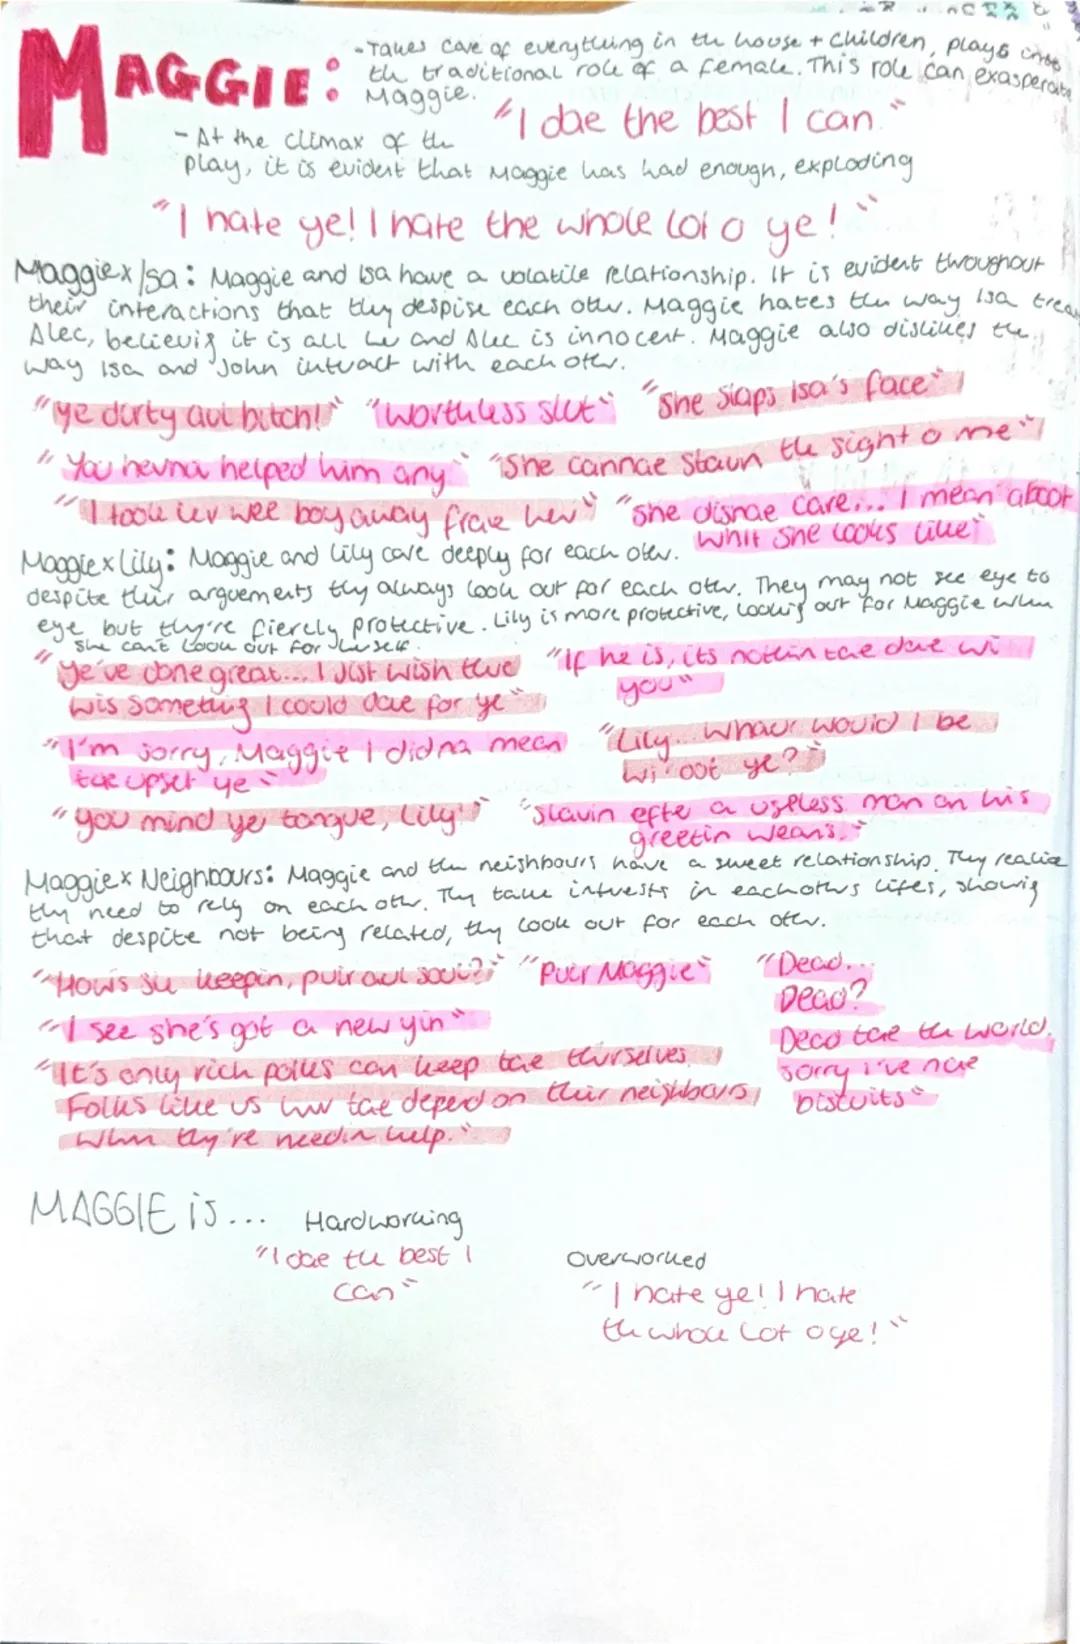 MAGGIE:
-Takes care of everything in the house + children, plays into
the traditional role of a female. This role can exasperate
Maggie.
"I dae the best I can"
- At the climax of the
play, it is evident that Maggie has had enough, exploding
"I hate ye! I hate the whole lot o ye!"
Maggie x Isa: Maggie and Isa have a volatile relationship. It is evident throughout
their interactions that they despise each other. Maggie hates the way Isa treats
Alec, believing it is all her and Alec is innocent. Maggie also dislikes the
way Isa and John interact with each other.
"ye durty aul bitch!" "worthless slut" "She slaps Isa's face"
"You nevna helped him any" "She cannae staun the sight o me"
"I took her wee boy away frae her" "she disnae care... I mean aboot
whit she looks like"
Maggie x Lily: Maggie and Lily care deeply for each other.
despite their arguements they always look out for each other. They may not see eye to
eye but they're fiercly protective. Lily is more protective, looking out for Maggie when
she can't look out for herself.
"ye've done great... I jist wish there
wis something I could dae for ye"
"If he is, its nothin tae dae wi
you"
"I'm sorry, Maggie I didna mean
tae upset ye"
"Lily... whaur would I be
wi'oot ye?"
"you mind yer tongue, Lily!"
"slavin efter a useless man an his
greetin weans."
Maggie x Neighbours: Maggie and the neighbours have a sweet relationship. They realise
they need to rely on each other. They take interests in eachothers lifes, showing
that despite not being related, they look out for each other.
"How's she keepin, puir aul soul?" "Puir Maggie"
"Dead...
Dead?
Dead tae the world,
sorry i've nae
biscuits"
"I see she's got a new yin"
"It's only rich folks can keep tae thurselves
Folks like us huv tae depend on their neighbours
when they're needin help."
MAGGIE is...
Hardworking
"I dae the best I
can"
Overworked
"I hate ye! I hate
the whole lot o ye!"